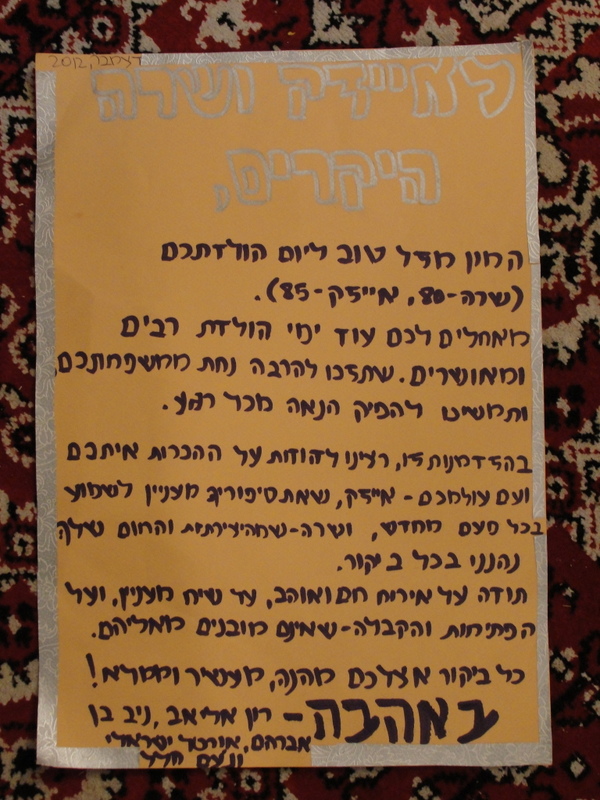 דצמבר, 2012
לאייזק ושרה
היקרים,
המון מזל טוב ליום הולדתכם
(שרה-80, אייזק-85).
מאחלים לכם עוד ימי הולדת רבים
ומאושרים. שתזכו להרבה נחת ממשפחותכם,
ותמשיכו להפיק הנאה מכל רגע.
בהזדמנות זו, רצינו להודות על ההכרות איתכם
ועם עולמכם - אייזק, שאת סיפוריך מעניין לשמוע
בכל פעם מחדש, ושרה-שמהיצירתיות והחום שלך
נהננו בכל ביקור.
תודה על אירוח חם ואוהב, על שיח מעניין, ועל
הפתיחות והקבלה-שאינם מובנים מאליהם.
כל ביקור אצלכם מהנה, מעשיר וממלא!
באהבה - רון אליאב, ניב בן
אברהם, אורטל ישראלי
ונעם הלל